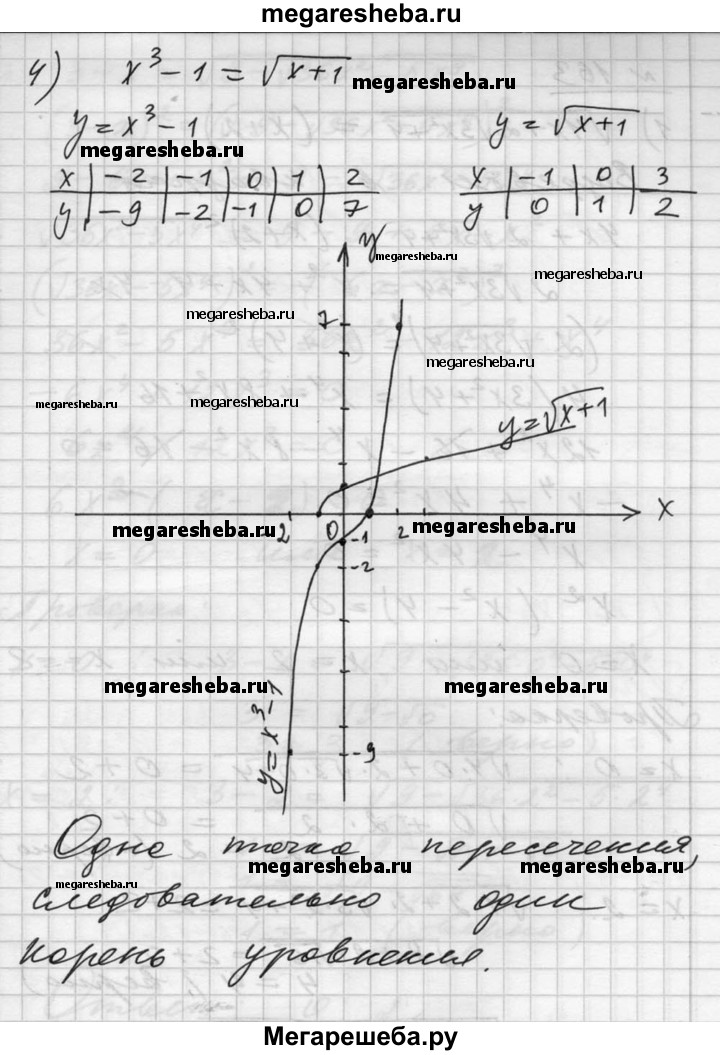 megaresheba.ru
4) x³ - 1 = √x+1
megaresheba.ru
y = x³ - 1 y = √x+1
megaresheba.ru
x | -2 | -1 | 0 | 1 | 2
y | -9 | -2 | -1 | 0 | 7
x | -1 | 0 | 3
y | 0 | 1 | 2
y
megaresheba.ru
megaresheba.ru
megaresheba.ru
7
megaresheba.ru
megaresheba.ru megaresheba.ru
y = √x+1
x
megaresheba.ru megaresheba.ru
-2 0 2
-1
-2
megaresheba.ru megaresheba.ru
y = x³ - 1
-9
Одна точка пересечения,
megaresheba.ru megaresheba.ru
megaresheba.ru
следовательно один
корень уровнения.
Мегарешеба.ру